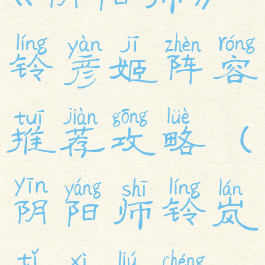 《阴阳师》
líng yàn jī zhèn róng
铃彦姬阵容
tuī jiàn gōng lüè
推荐攻略（
yīn yáng shī líng lán
阴阳师铃岚
tǐ xì liú chéng